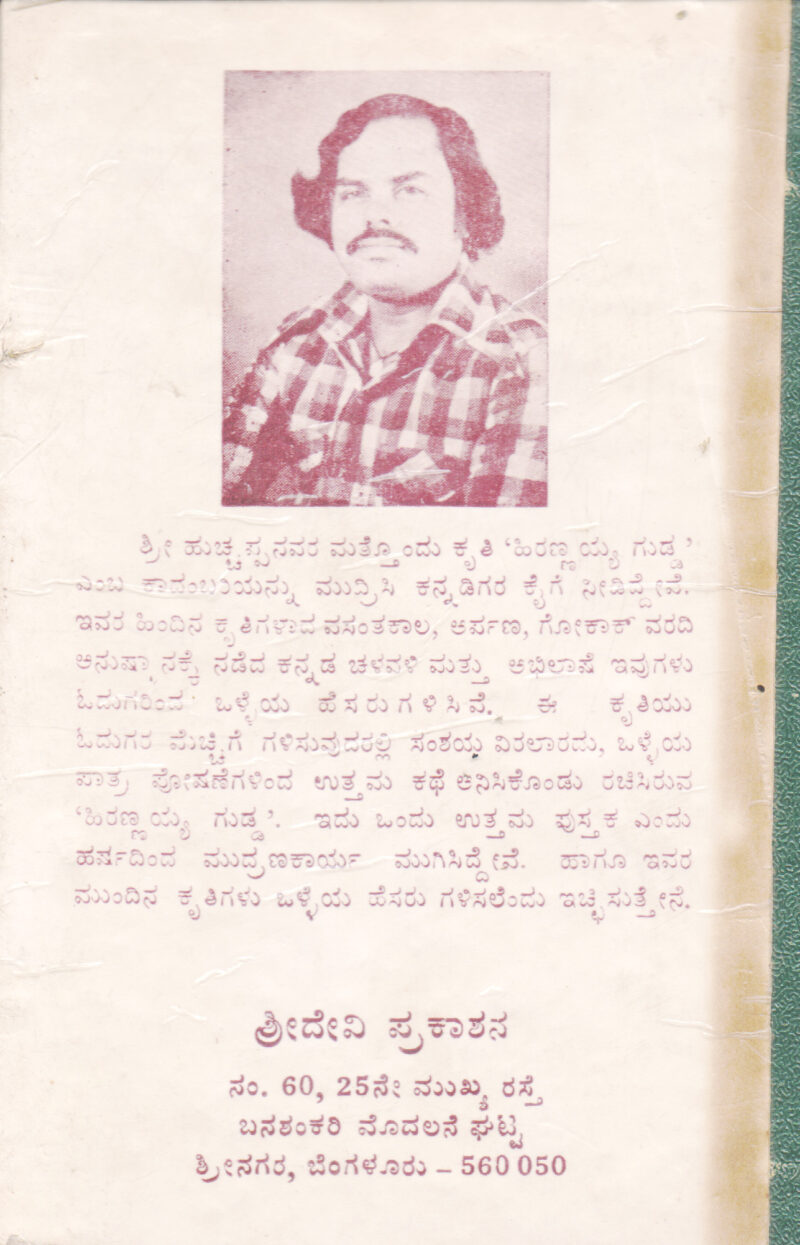 ಶ್ರೀ ಹುಚ್ಚಪ್ಪನವರ ಮತ್ತೊಂದು ಕೃತಿ ‘ಹಿರಣ್ಣಯ್ಯ ಗುಡ್ಡ’
ಎಂಬ ಕಾದಂಬರಿಯನ್ನು ಮುದ್ರಿಸಿ ಕನ್ನಡಿಗರ ಕೈಗೆ ನೀಡಿದ್ದೇವೆ.
ಇವರ ಹಿಂದಿನ ಕೃತಿಗಳಾದ ವಸಂತಕಾಲ, ಅರ್ಪಣ, ಗೋಕಾಕ್ ವರದಿ
ಅನುಷ್ಠಾನಕ್ಕೆ ನಡೆದ ಕನ್ನಡ ಚಳವಳಿ ಮತ್ತು ಅಭಿಲಾಷೆ ಇವುಗಳು
ಓದುಗರಿಂದ ಒಳ್ಳೆಯ ಹೆಸರುಗಳಿಸಿವೆ. ಈ ಕೃತಿಯು
ಓದುಗರ ಮೆಚ್ಚಿಗೆ ಗಳಿಸುವುದರಲ್ಲಿ ಸಂಶಯ ವಿರಲಾರದು, ಒಳ್ಳೆಯ
ಪಾತ್ರ ಪೋಷಣೆಗಳಿಂದ ಉತ್ತಮ ಕಥೆ ಅನಿಸಿಕೊಂಡು ರಚಿಸಿರುವ
‘ಹಿರಣ್ಣಯ್ಯ ಗುಡ್ಡ’. ಇದು ಒಂದು ಉತ್ತಮ ಪುಸ್ತಕ ಎಂದು
ಹರ್ಷದಿಂದ ಮುದ್ರಣಕಾರ್ಯ ಮುಗಿಸಿದ್ದೇವೆ. ಹಾಗೂ ಇವರ
ಮುಂದಿನ ಕೃತಿಗಳು ಒಳ್ಳೆಯ ಹೆಸರು ಗಳಿಸಲೆಂದು ಇಚ್ಛಿಸುತ್ತೇನೆ.
ಶ್ರೀದೇವಿ ಪ್ರಕಾಶನ
ನಂ. 60, 25ನೇ ಮುಖ್ಯ ರಸ್ತೆ
ಬನಶಂಕರಿ ಮೊದಲನೆ ಘಟ್ಟ
ಶ್ರೀನಗರ, ಬೆಂಗಳೂರು – 560 050